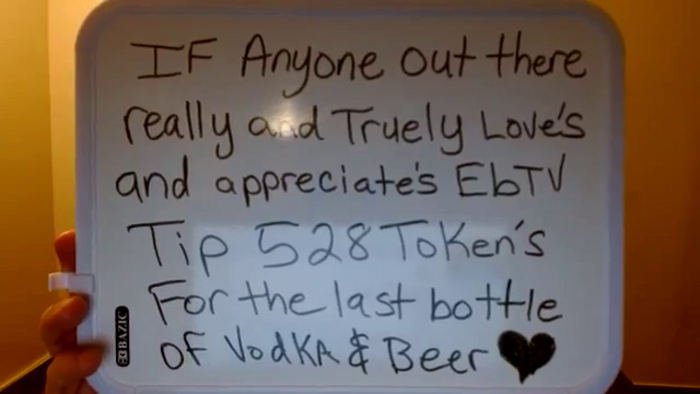 IF Anyone out there
really and Truely Love's
and appreciate's EbTV
Tip 528 Token's
For the last bottle
of Vodka & Beer ♥
BAZIC